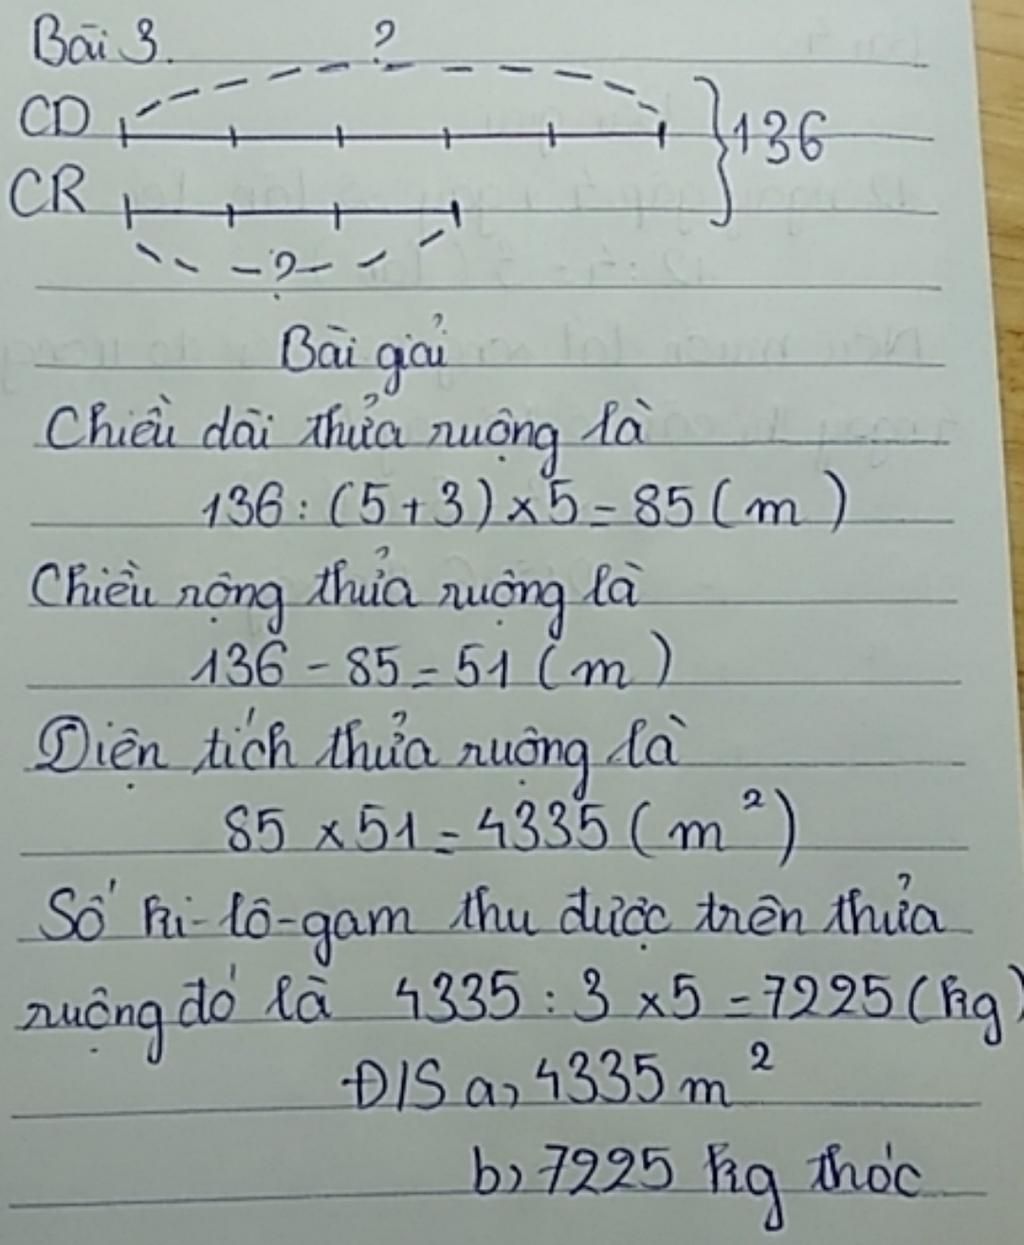 Bài 3.
?
CD
136
CR
?
Bài giải
Chiều dài thửa ruộng là
136 : (5+3) × 5 = 85 (m)
Chiều rộng thửa ruộng là
136 - 85 = 51 (m)
Diện tích thửa ruộng là
85 × 51 = 4335 (m²)
Số ki-lô-gam thu được trên thửa
ruộng đó là 4335 : 3 × 5 = 7225 (kg)
Đ/S a, 4335 m²
b, 7225 kg thóc